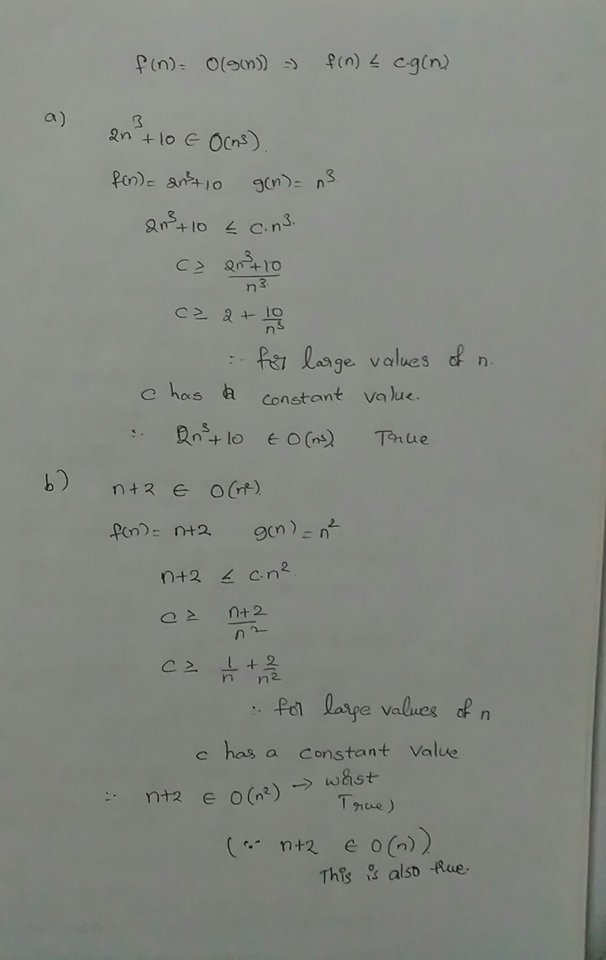 f(n) = O(g(n)) => f(n) ≤ c.g(n)
a)
2n³+10 ∈ O(n³).
f(n) = 2n³+10 g(n) = n³
2n³+10 ≤ c.n³.
c ≥ 2n³+10 / n³
c ≥ 2 + 10/n³
∴ for large values of n.
c has a constant value.
∴ 2n³+10 ∈ O(n³) True
b) n+2 ∈ O(n²)
f(n) = n+2 g(n) = n²
n+2 ≤ c.n²
c ≥ n+2 / n²
c ≥ 1/n + 2/n²
∴ for large values of n
c has a constant value
∴ n+2 ∈ O(n²) → worst
True)
(∵ n+2 ∈ O(n))
This is also true.